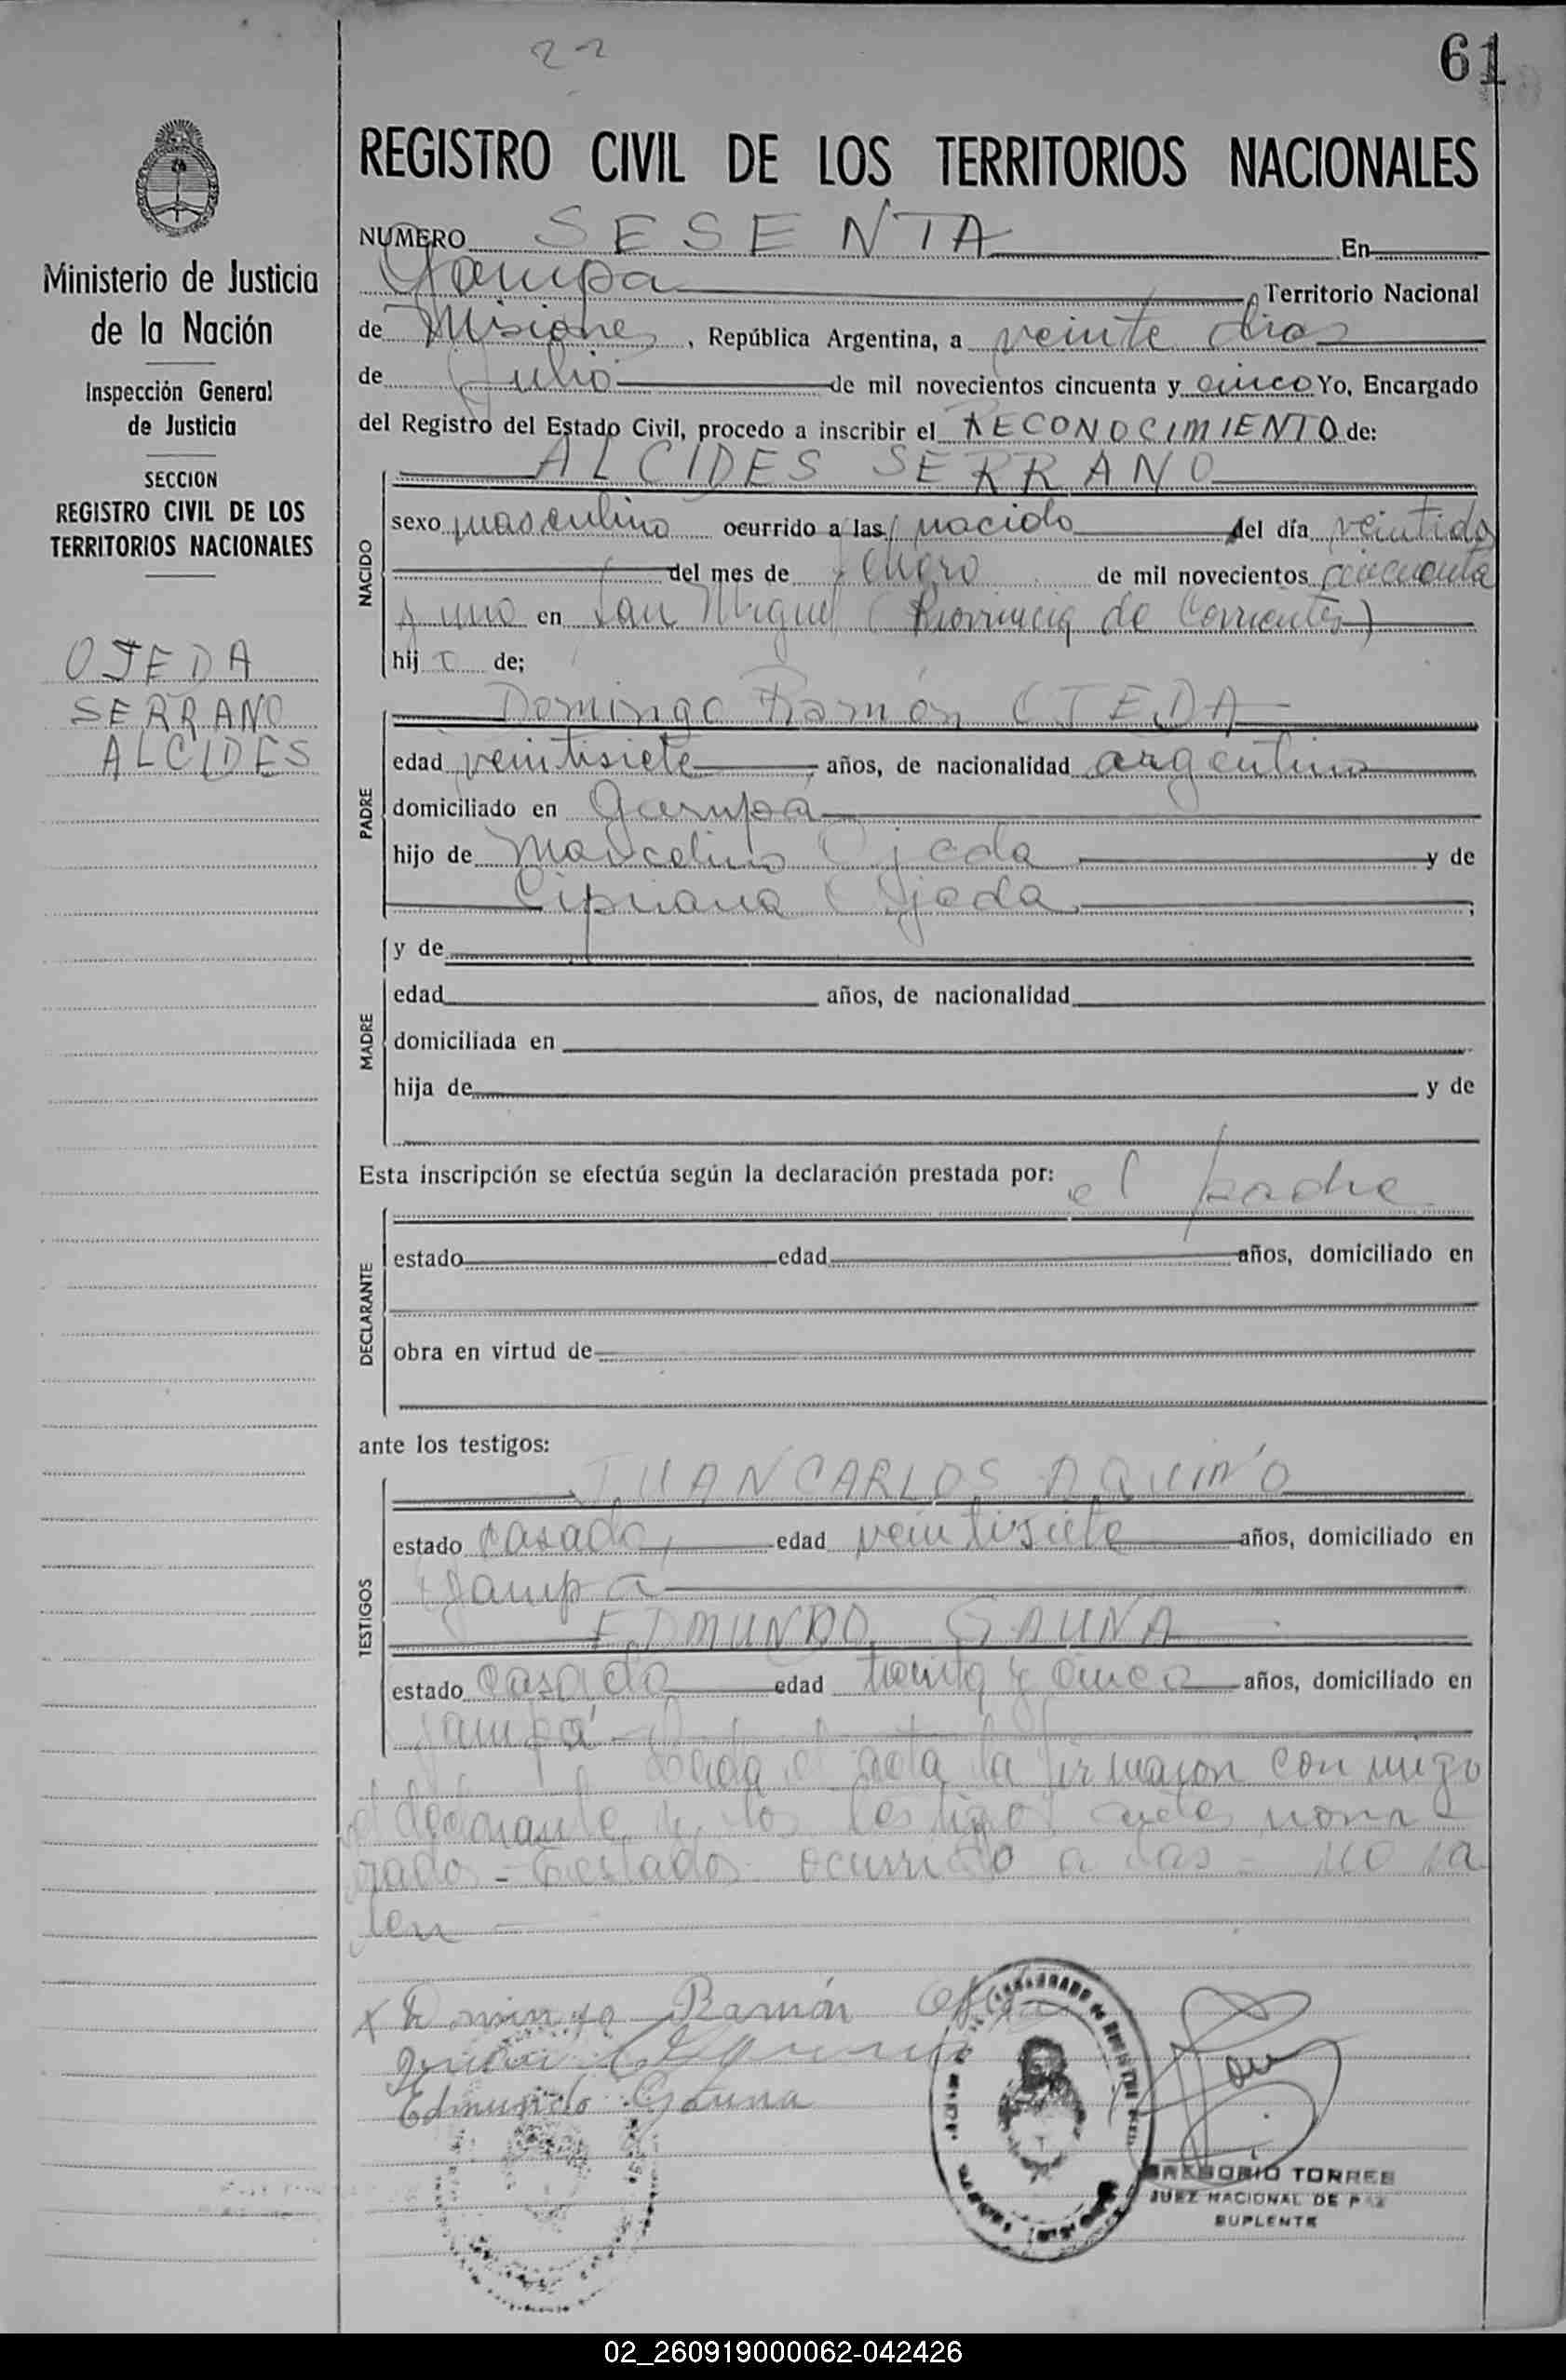 22
61
REGISTRO CIVIL DE LOS TERRITORIOS NACIONALES
Ministerio de Justicia
de la Nación
Inspección General
de Justicia
SECCION
REGISTRO CIVIL DE LOS
TERRITORIOS NACIONALES
OJEDA
SERRANO
ALCIDES
NUMERO SESENTA En
Garupa Territorio Nacional
de Misiones, República Argentina, a veinte dias
de Julio de mil novecientos cincuenta y cinco Yo, Encargado
del Registro del Estado Civil, procedo a inscribir el RECONOCIMIENTO de:
NACIDO
ALCIDES SERRANO
sexo masculino ocurrido a las nacido del día veintidos
del mes de Enero de mil novecientos cincuenta
y uno en San Miguel (Provincia de Corrientes)
hijo de;
PADRE
Domingo Ramón OJEDA
edad veintisiete años, de nacionalidad argentino
domiciliado en Garupá
hijo de Marcelino Ojeda y de
Cipriana Ojeda,
MADRE
y de
edad años, de nacionalidad
domiciliada en
hija de y de
Esta inscripción se efectúa según la declaración prestada por: el padre
DECLARANTE
estado edad años, domiciliado en
obra en virtud de
ante los testigos:
TESTIGOS
JUAN CARLOS AQUINO
estado casado, edad veintisiete años, domiciliado en
Garupá
EDMUNDO GAUNA
estado casado edad treinta y cinco años, domiciliado en
Garupá - Leida el acta la firmaron conmigo
el declarante y los testigos antes nom
rados - Testados: ocurrido a las - no va
len
x Domingo Ramón Ojeda
Edmundo Gauna
GREGORIO TORRES
JUEZ NACIONAL DE PAZ
SUPLENTE
02_260919000062-042426